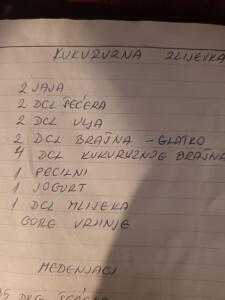 KUKURUZNA ZLIJEVKA
2 JAJA
2 DCL ŠEĆERA
2 DCL ULJA
2 DCL BRAŠNA - GLATKO
4 DCL KUKURUZNJE BRAŠNA
1 PECILNI
1 JOGURT
1 DCL MLIJEKA
GORE VRHNJE
MEDENJACI
35 DKG ŠEĆERA